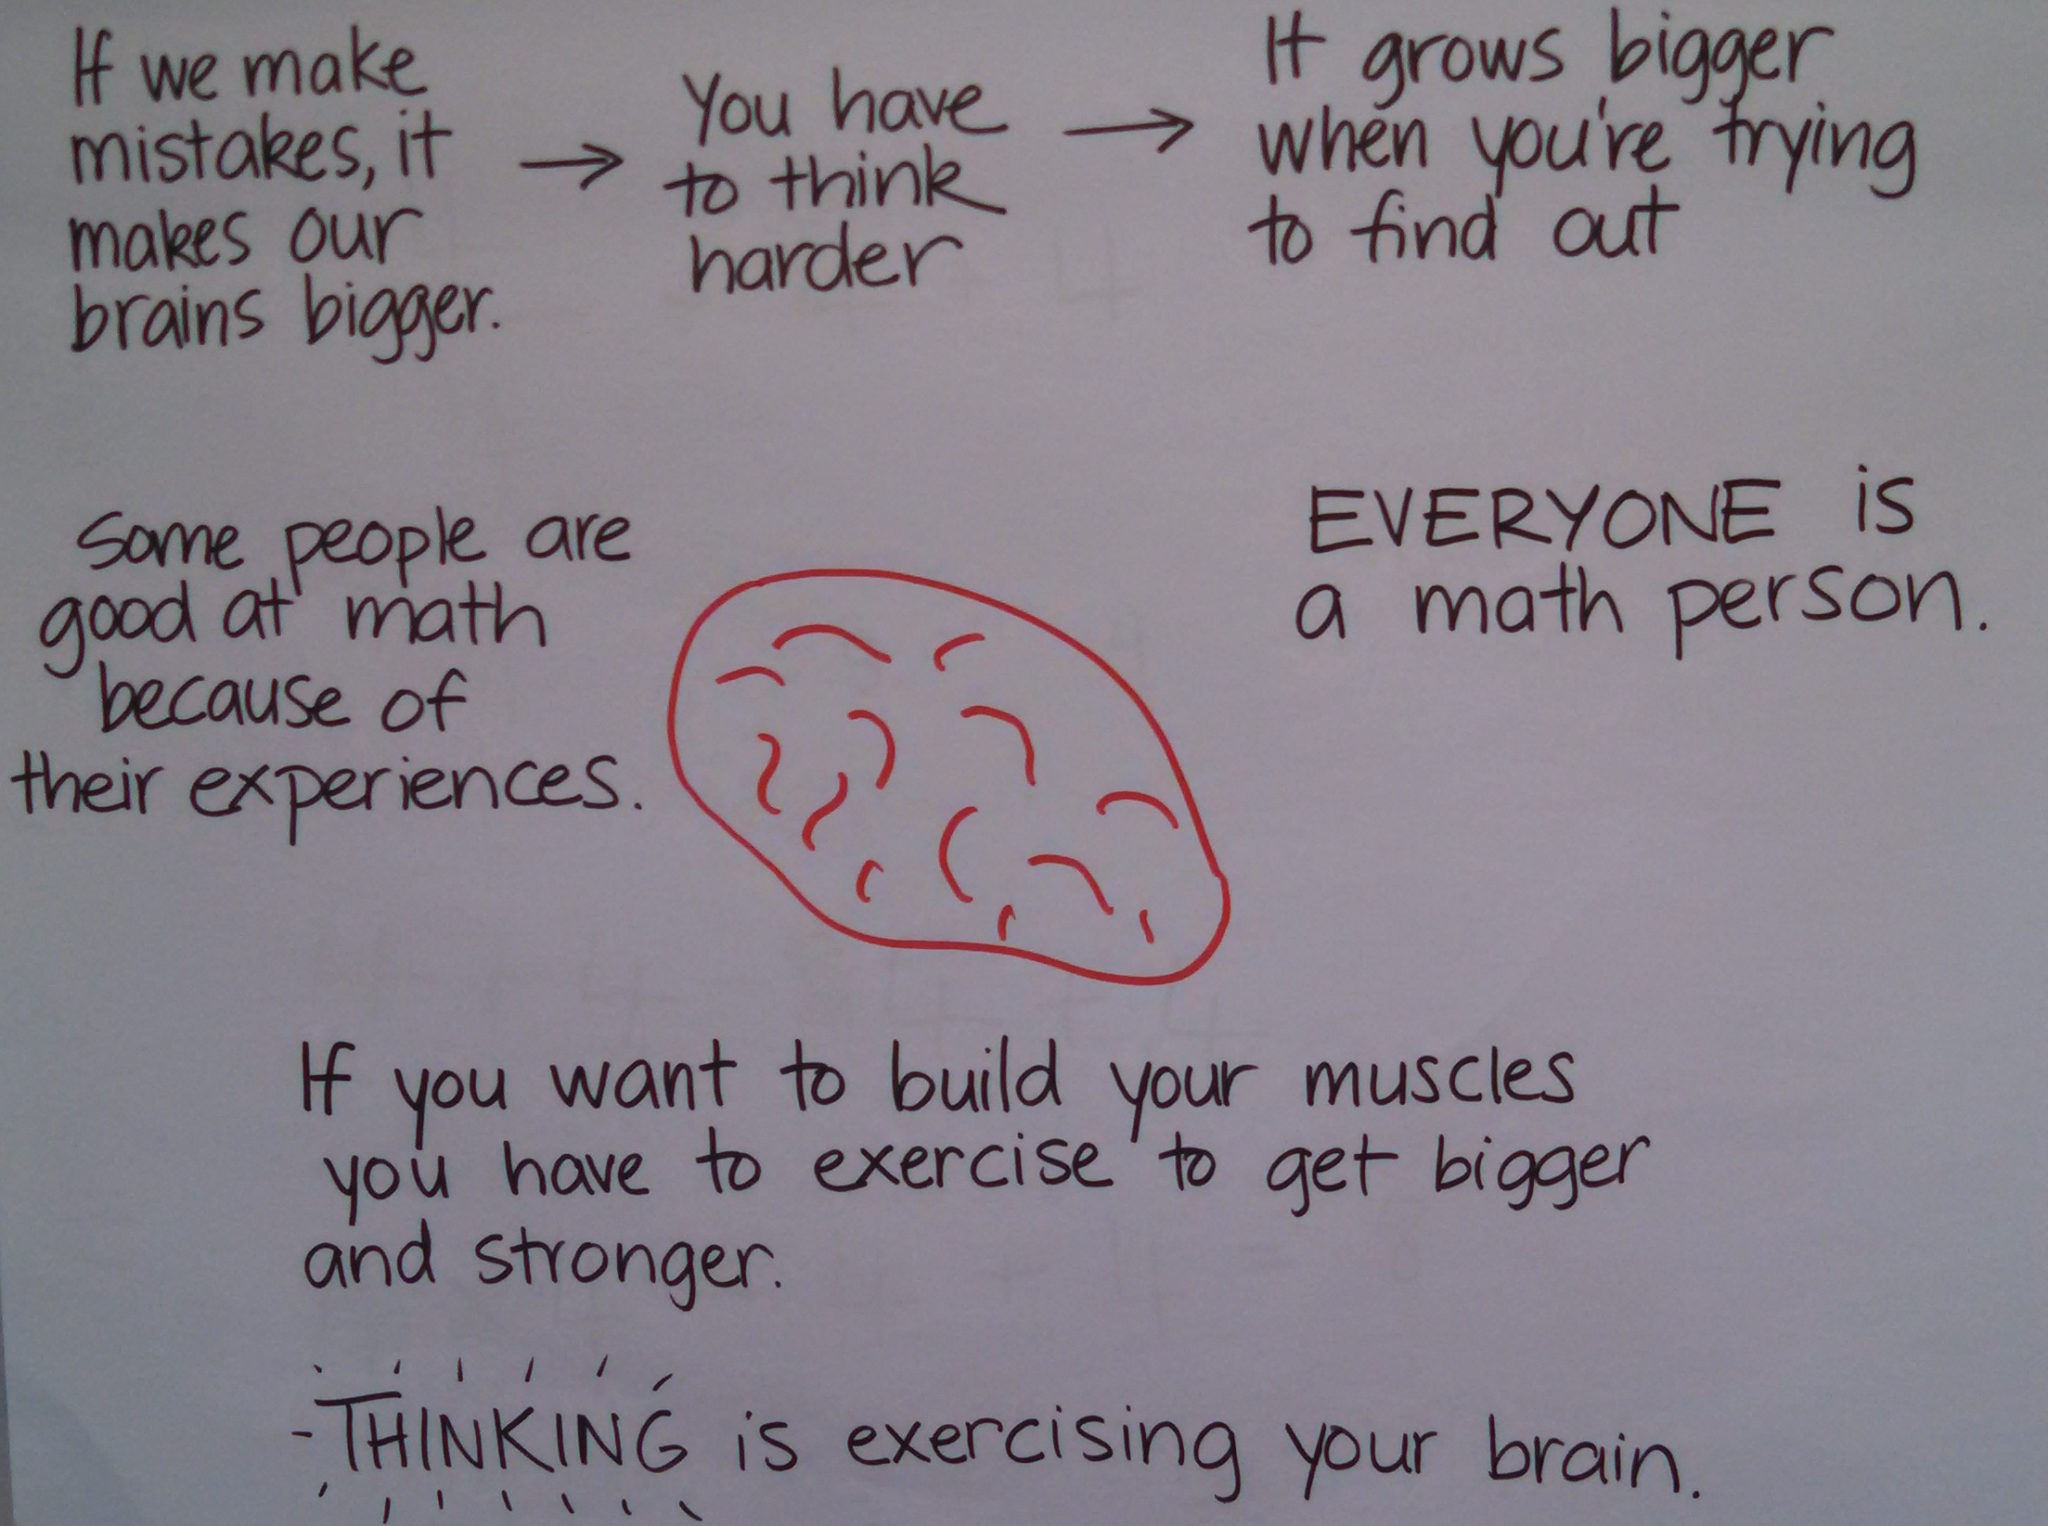 If we make
mistakes, it
makes our
brains bigger.
→ You have
to think
harder
→ It grows bigger
when you're trying
to find out
Some people are
good at math
because of
their experiences.
EVERYONE is
a math person.
If you want to build your muscles
you have to exercise to get bigger
and stronger.
THINKING is exercising your brain.